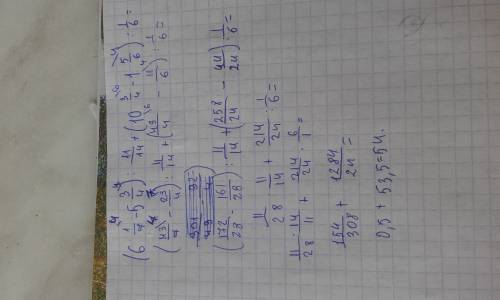 (6 1/7 - 5 3/4) : 11/14 + (10 3/4 - 1 5/6) : 1/6 =
(43/7 - 23/4) : 11/14 + (43/4 - 11/6) : 1/6 =
(172/28 - 161/28) : 11/14 + (258/24 - 44/24) : 1/6 =
11/28 : 11/14 + 214/24 : 1/6 =
11/28 · 14/11 + 214/24 · 6/1 =
154/308 + 1284/24 =
0,5 + 53,5 = 54.